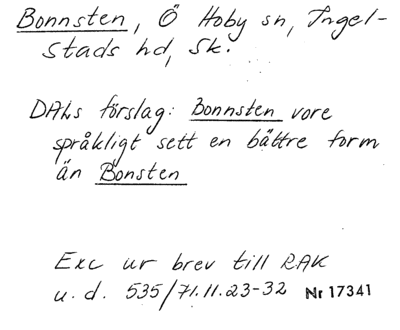 Bonnsten, Ö Hoby sn, Ingel-
stads hd, Sk.
DALs förslag: Bonnsten vore
språkligt sett en bättre form
än Bonsten
Exc ur brev till RAK
u. d. 535/71.11.23-32 Nr 17341